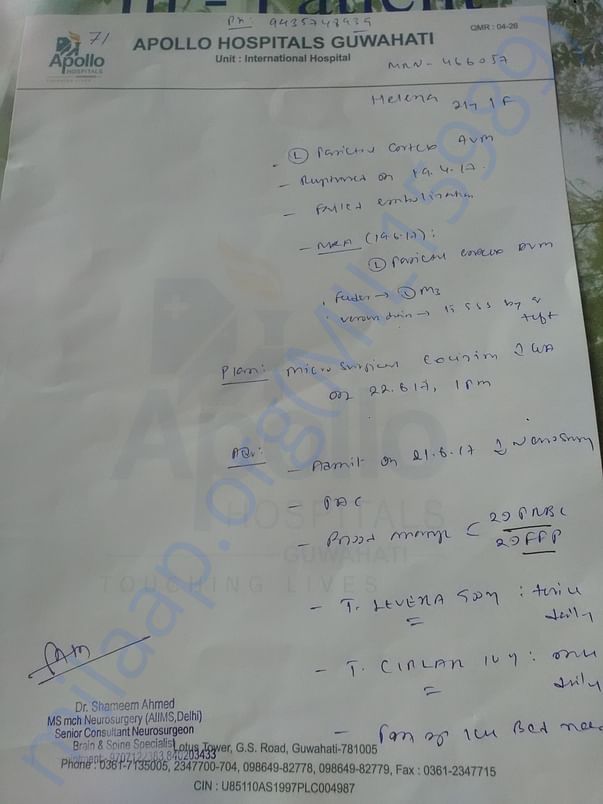 In - Patient
Ph: 9435748939
71
Apollo
HOSPITALS
TOUCHING LIVES
APOLLO HOSPITALS GUWAHATI
Unit : International Hospital
QMR : 04-26
MRN - 466057
Helena 21y / F
- Ⓛ Parietal cortex AVM
- Ruptured on 19.4.17.
- Failed embolization
- MRA (19.6.17):
Ⓛ Parietal cortex AVM
Feeder → Ⓛ M3
venous drain → SSS by a
Plan: Microsurgical excision GA
on 22.6.17, 1pm
Adv:
- Admit on 21.6.17
- PAC
- Blood arrange < 2 PRBC
2 FFP
- T. LEVERA 500mg : twice daily
- T. : once daily
- ICU Bed need
Apollo
HOSPITALS
GUWAHATI
TOUCHING LIVES
milaap.org(MIL15989)
Dr. Shameem Ahmed
MS mch Neurosurgery (AIIMS,Delhi)
Senior Consultant Neurosurgeon
Brain & Spine Specialist
Lotus Tower, G.S. Road, Guwahati-781005
Phone : 0361-7135005, 2347700-704, 098649-82778, 098649-82779, Fax : 0361-2347715
CIN : U85110AS1997PLC004987